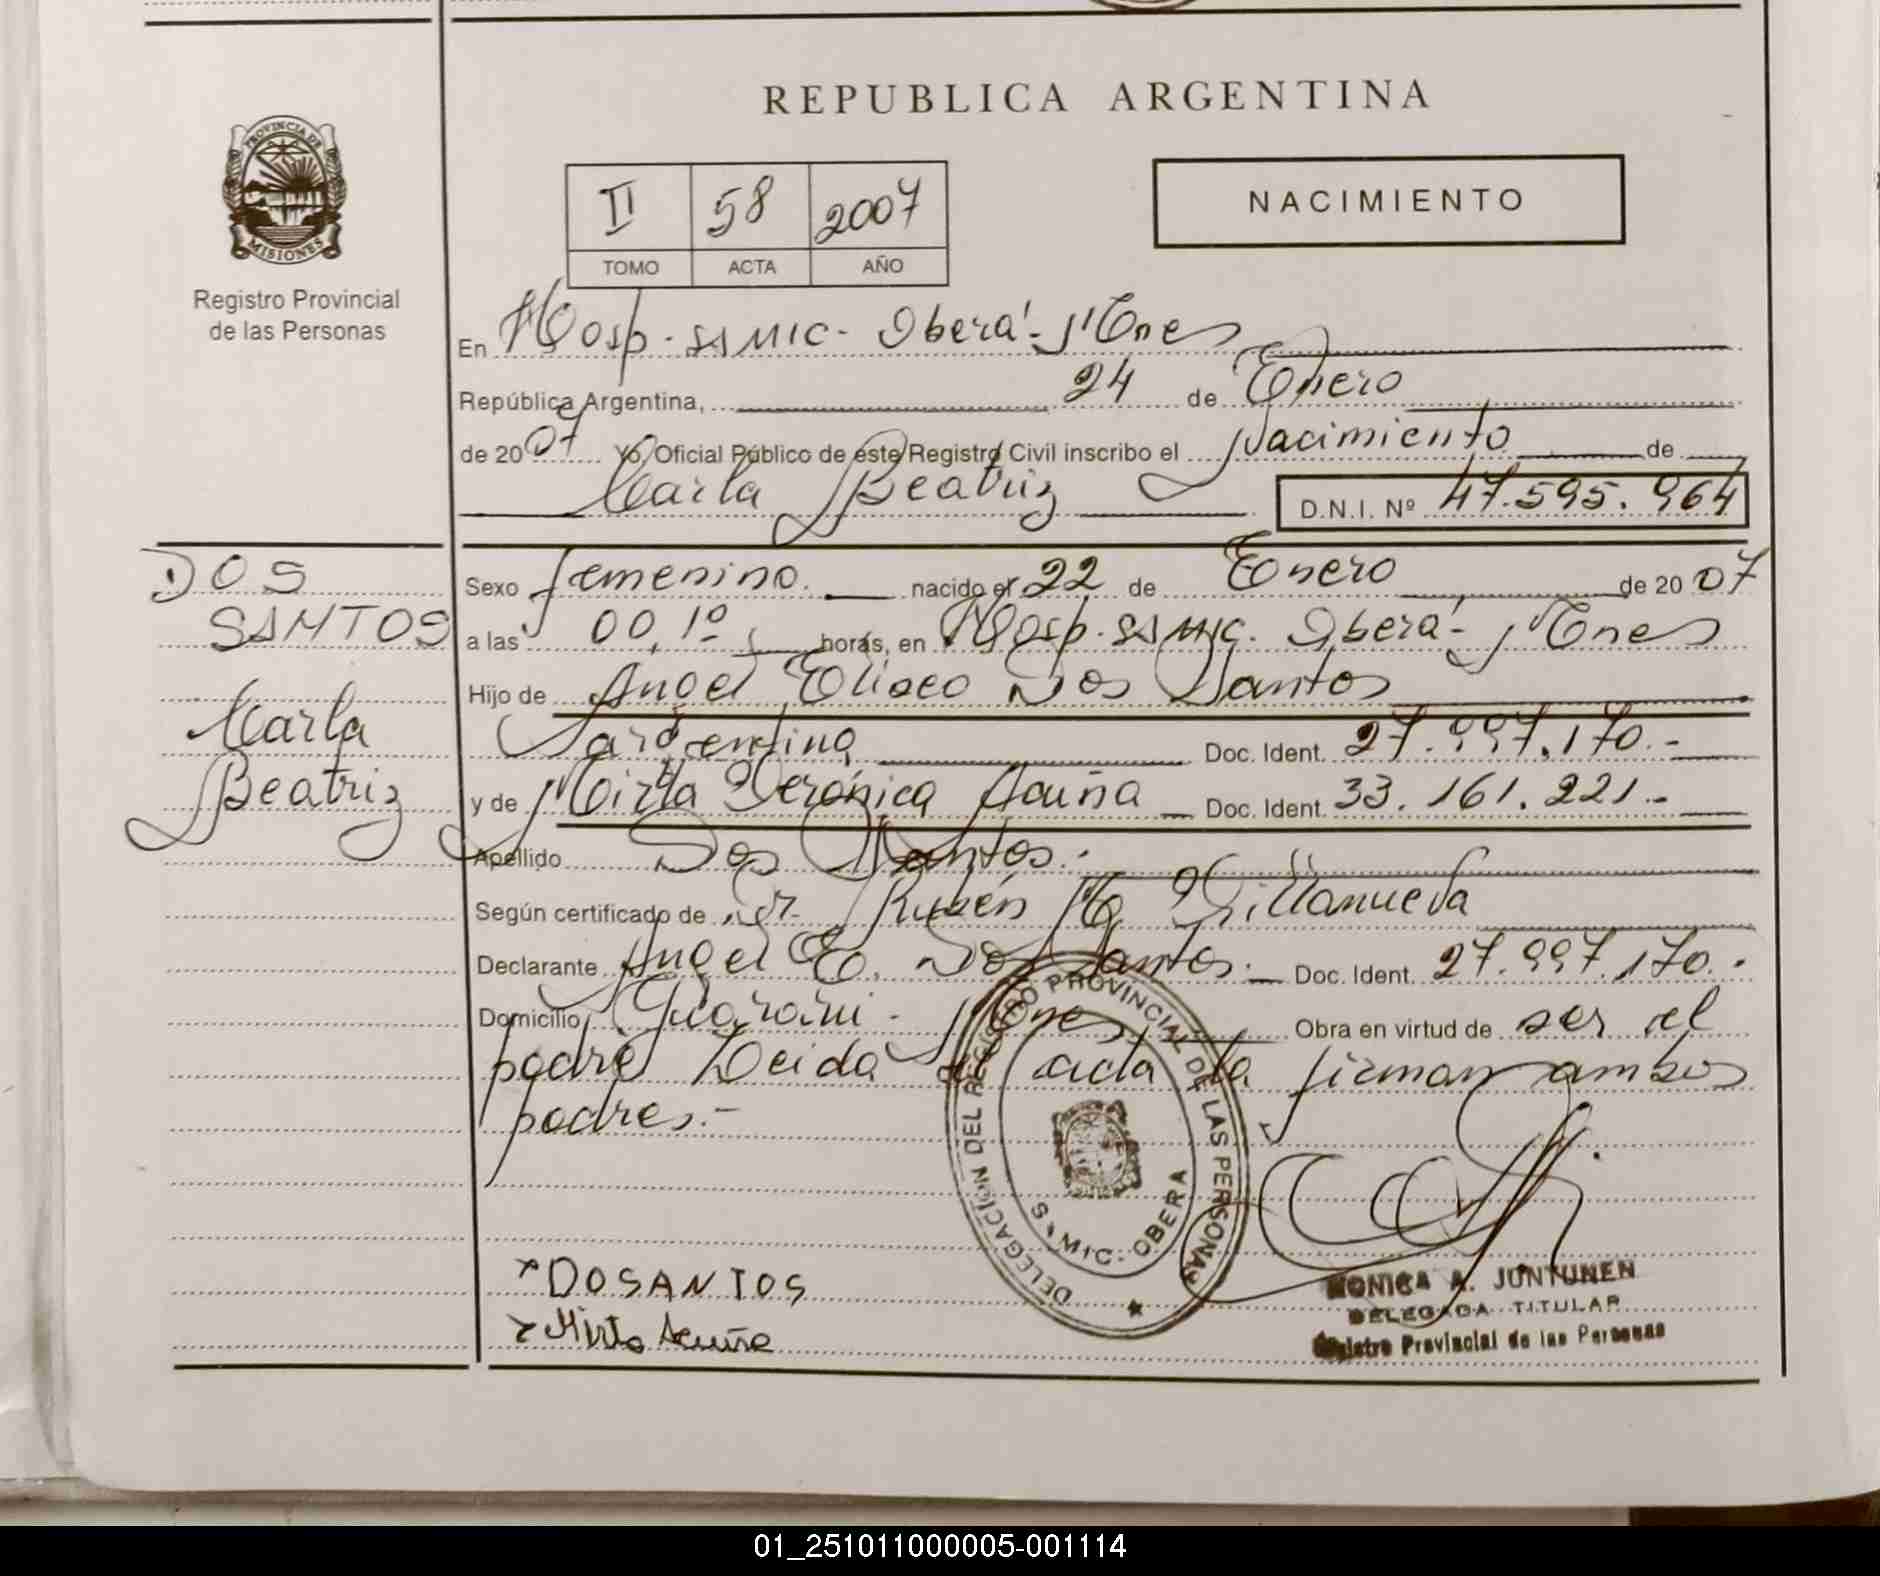 REPUBLICA ARGENTINA
PROVINCIA DE
MISIONES
Registro Provincial
de las Personas
II 58 2007
TOMO ACTA AÑO
NACIMIENTO
En Hosp. SAMIC - Oberá - Mnes
República Argentina, 24 de Enero
de 2007 Yo, Oficial Público de este Registro Civil inscribo el Nacimiento de
Carla Beatriz D.N.I. Nº 47.595.964
DOS
SANTOS
Carla
Beatriz
Sexo femenino. nacido el 22 de Enero de 2007
a las 00,10 horas, en Hosp. SAMIC. Oberá - Mnes
Hijo de Angel Eliseo Dos Santos
argentina Doc. Ident. 27.997.170.-
y de Mirta Verónica Acuña Doc. Ident. 33.161.221.-
Apellido Dos Santos.-
Según certificado de Dr. Rubén H Villanueva
Declarante Angel E. Dos Santos.- Doc. Ident. 27.997.170.-
Domicilio Guaraní - Mnes Obra en virtud de ser el
padre Leida el acta la firman ambos
padres.-
DELEGACIÓN DEL REGISTRO PROVINCIAL DE LAS PERSONAS
SAMIC. OBERA
DOSANTOS
Mirta Acuña
MONICA A. JUNTUNEN
DELEGADA TITULAR
Registro Provincial de las Personas
01_251011000005-001114